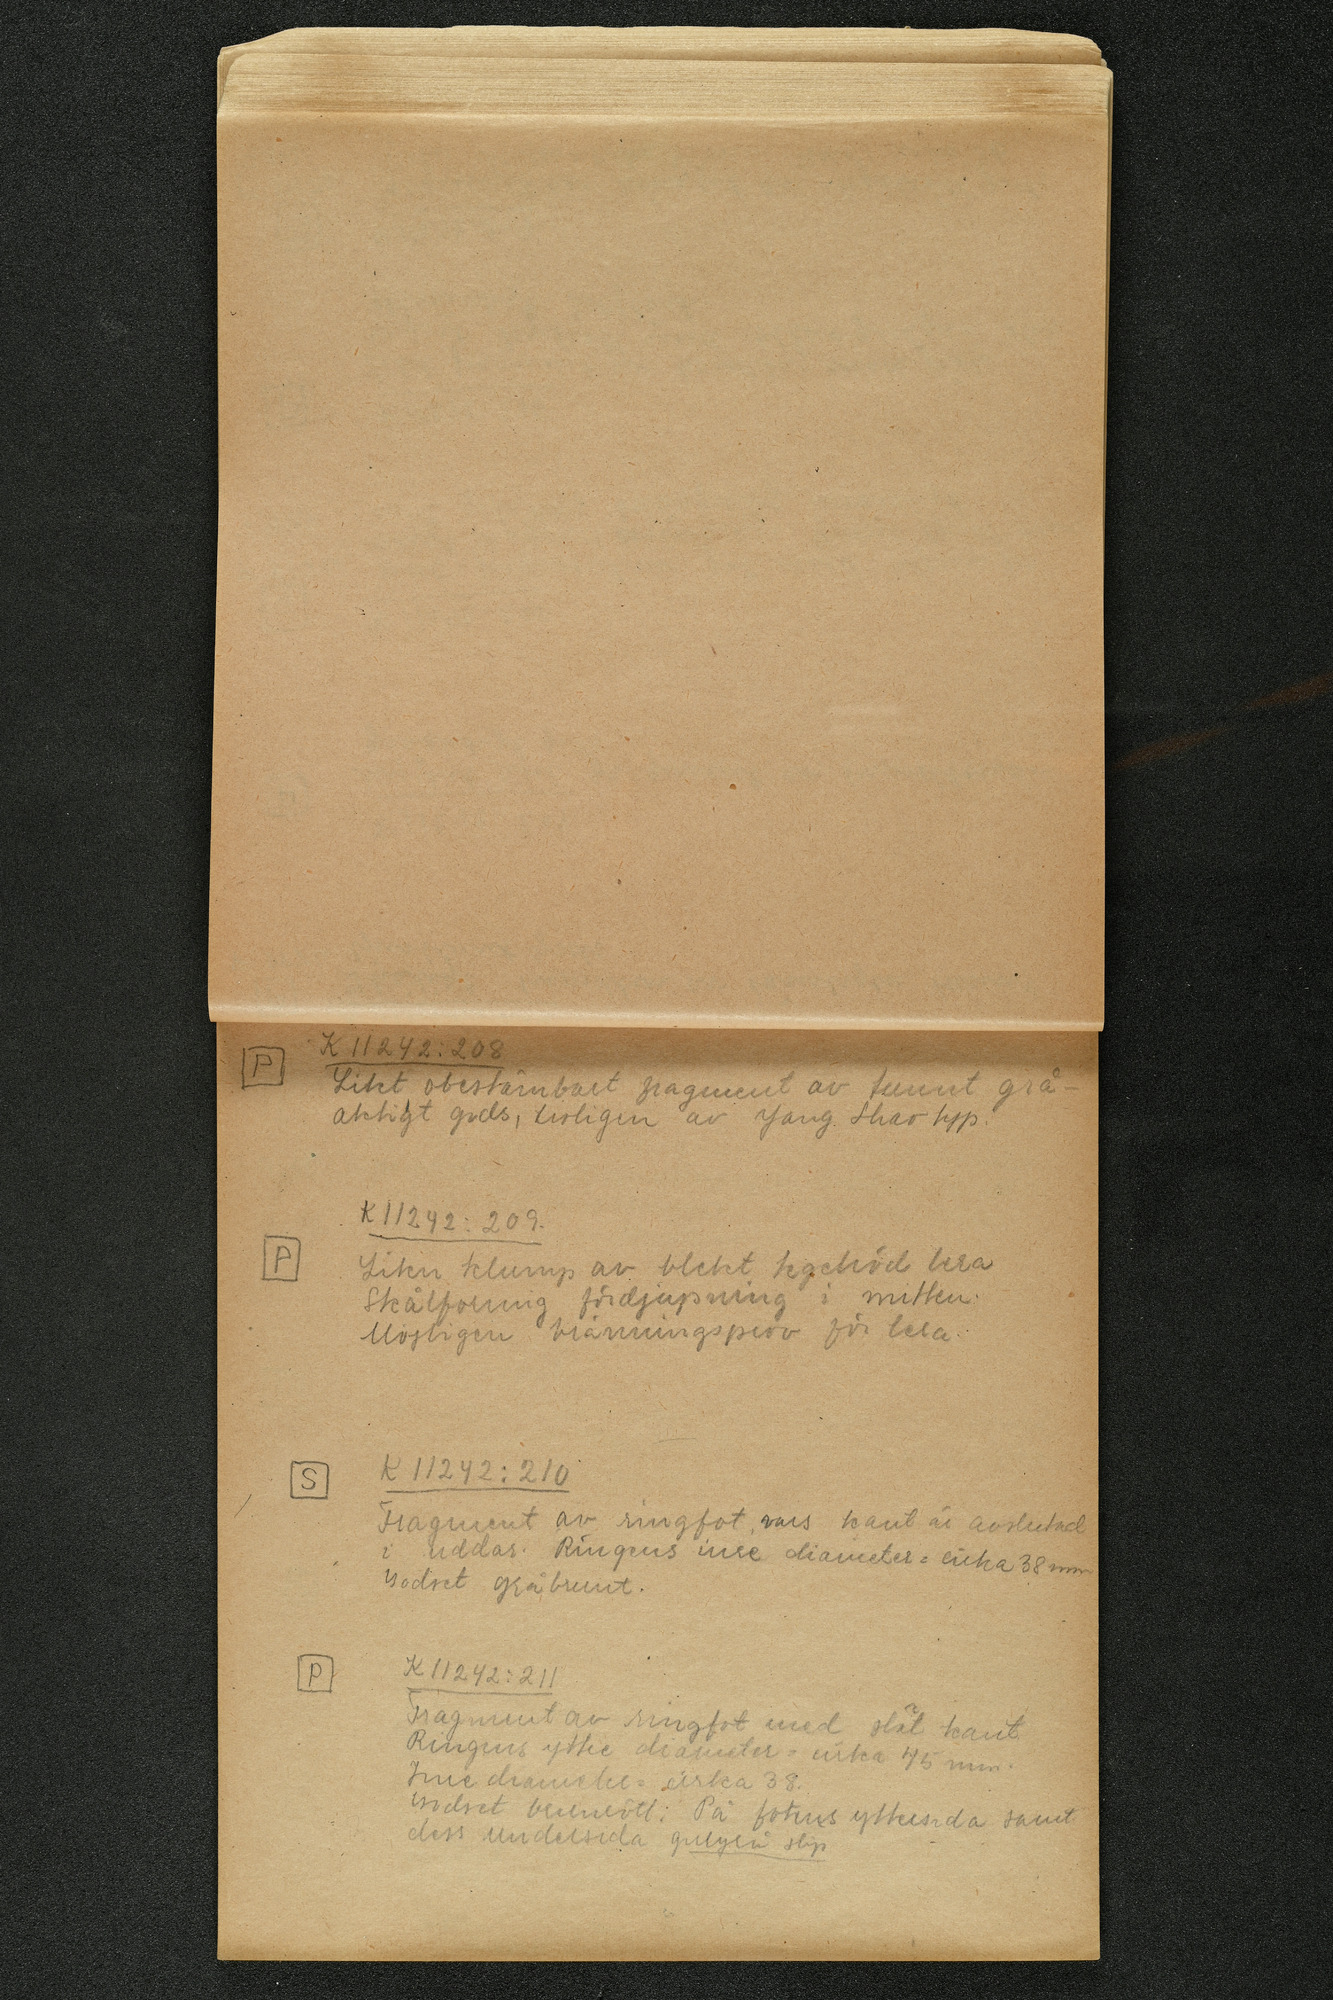 P K 11242:208
Litet obestämbart fragment av tunnt grå-
aktigt gods, troligen av Yang Shao typ.
K 11242:209.
P Liten klump av blekt tegelröd lera
Skålforмig fördjupning i mitten.
Möjligen bränningsprov för lera.
S K 11242:210
Fragment av ringfot, vars kant är avslutad
i uddar. Ringens inre diameter = cirka 38 mm
Godset gråbrunt.
P K 11242:211
Fragment av ringfot med slät kant
Ringens yttre diameter = cirka 45 mm.
Inre diameter = cirka 38.
Godset På fotens yttersida samt
dess undersida slip